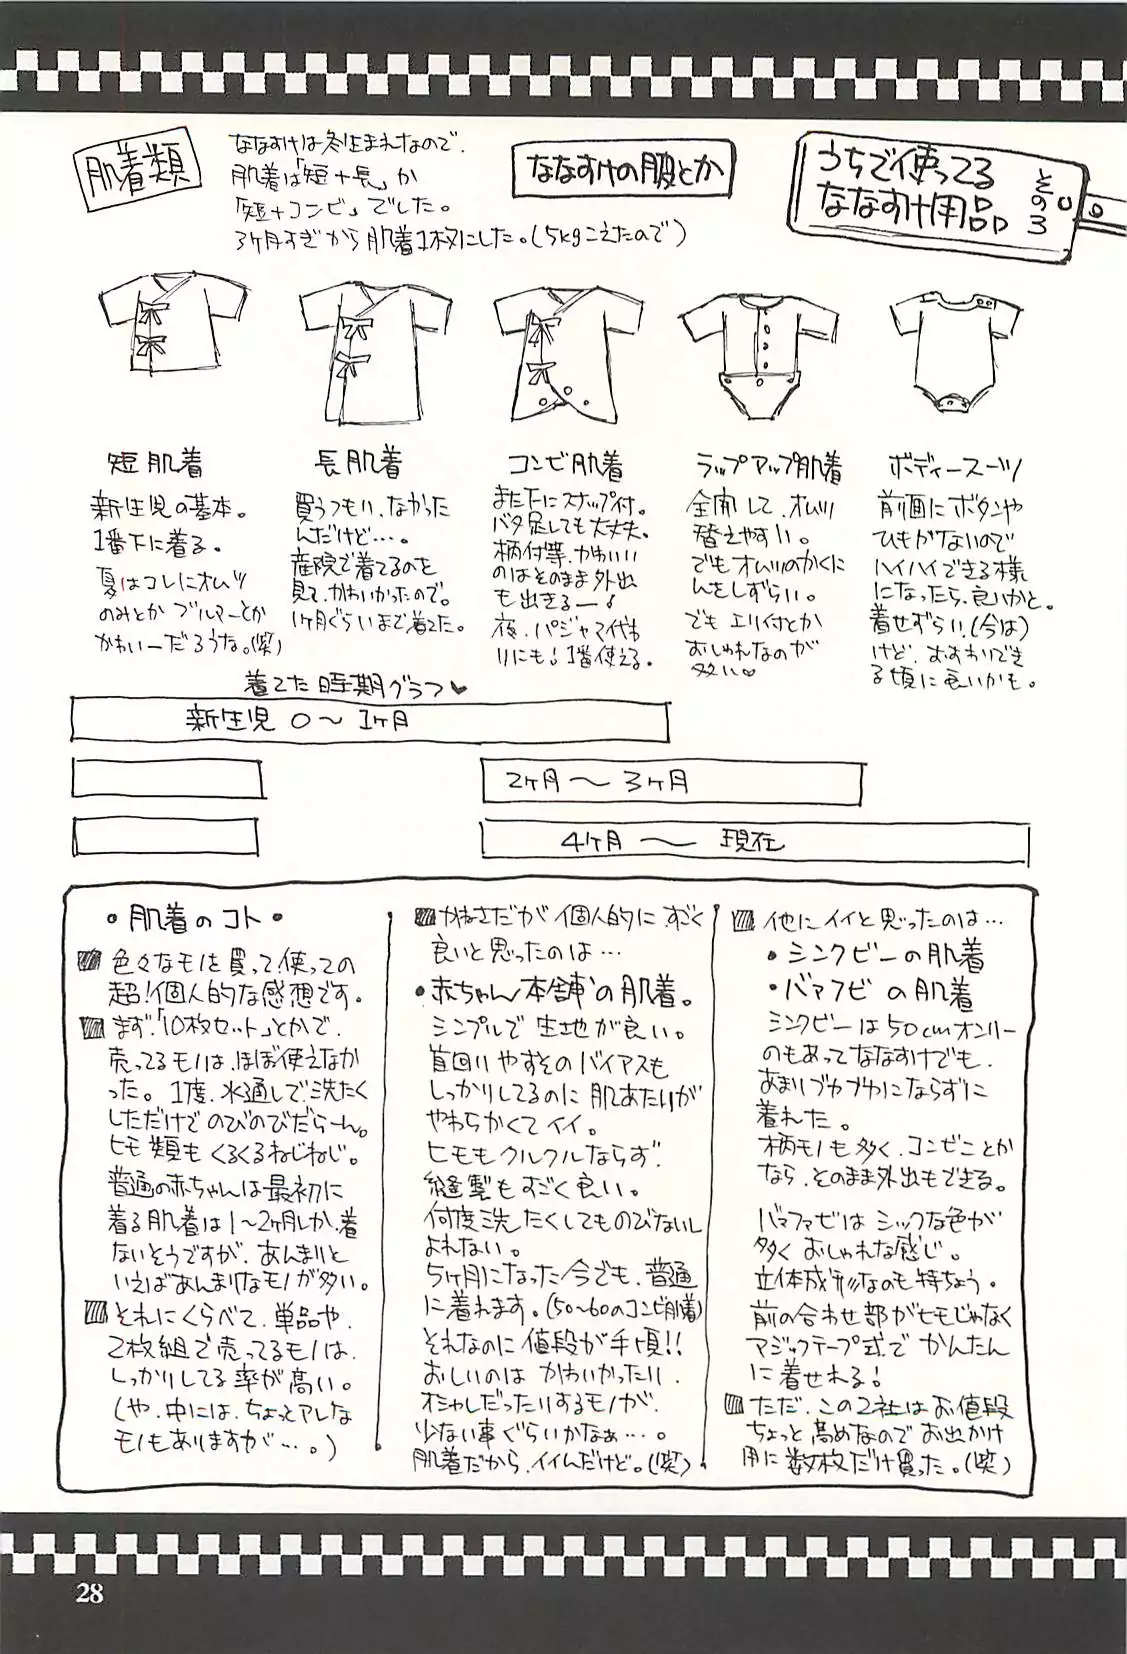 うちで使ってる
ななすけ用品
その3
ななすけの服とか
肌着類
ななすけは冬生まれなので、
肌着は「短+長」か
「短+コンビ」でした。
3ヶ月すぎから肌着1枚にした。(5kgこえたので)
短肌着
新生児の基本。
1番下に着る。
夏はコレにオムツ
のみとかブルマーとか
かわいーだろうな。(笑)
長肌着
買うつもり、なかった
んだけど…。
産院で着てるのを
見て、かわいかったので。
1ヶ月ぐらいまで着てた。
コンビ肌着
また下にスナップ付。
バタ足しても大丈夫。
柄付等、かわいい
のはそのまま外出
も出きるー!
夜、パジャマ代わ
りにも!1番使える。
ラップアップ肌着
全開して、オムツ
替えやすい。
でもオムツのかくに
んをしずらい。
でも エリ付とか
おしゃれなのが
多い♡
ボディースーツ
前面にボタンや
ひもがないので
ハイハイできる様
になったら、良いかと。
着せずらい、(今は)
けど、おすわりでき
る頃に良いかも。
着てた時期グラフ♥
新生児 0〜1ヶ月
2ヶ月〜3ヶ月
4ヶ月〜 現在
・肌着のコト・
色々なモノを買って使っての
超!個人的な感想です。
まず、「10枚セット」とかで、
売ってるモノは、ほぼ使えなか
った。1度、水通しで洗たく
しただけでのびのびだらーん。
ヒモ類もくるくるねじねじ。
普通の赤ちゃんは最初に
着る肌着は1〜2ヶ月しか、着
ないそうですが、あんまりと
いえばあんまりなモノが多い。
それにくらべて、単品や、
2枚組で売ってるモノは、
しっかりしてる率が高い。
(や、中には、ちょっとアレな
モノもありますが…。)
かねさだが個人的にすごく
良いと思ったのは…
・赤ちゃん本舗の肌着。
シンプルで生地が良い。
首回りやすそのバイアスも
しっかりしてるのに肌あたりが
やわらかくてイイ。
ヒモもクルクルならず、
縫製もすごく良い。
何度洗たくしてものびないし
よれない。
5ヶ月になった今でも、普通
に着れます。(50〜60のコンビ肌着)
それなのに値段が手頃!!
おしいのは かわいかったり、
オシャレだったりするモノが、
少ない事ぐらいかなぁ…。
肌着だから、イイんだけど。(笑)
他にイイと思ったのは…
・シンクビーの肌着
・バァフビの肌着
シンクビーは50cmオンリー
のもあってななすけでも、
あまりブカブカにならずに
着れた。
柄モノも多く、コンビことか
なら、そのまま外出もできる。
バァファビは シックな色が
多く おしゃれな感じ。
立体成形なのも特ちょう。
前の合わせ部がヒモじゃなく
マジックテープ式で かんたん
に着せれる!
ただ、この2社はお値段
ちょっと高めなので お出かけ
用に数枚だけ買った。(笑)
28